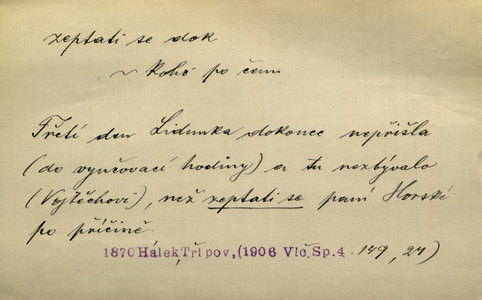 zeptati se dok
~ koho po čem
Třetí den Lidunka dokonce nepřišla
(do vyučovací hodiny) a tu nezbývalo
(Vojtěchovi), než zeptati se paní Horské
po příčině.
1870 Hálek, Tři pov, (1906 Vlč, Sp. 4 . 149, 24)